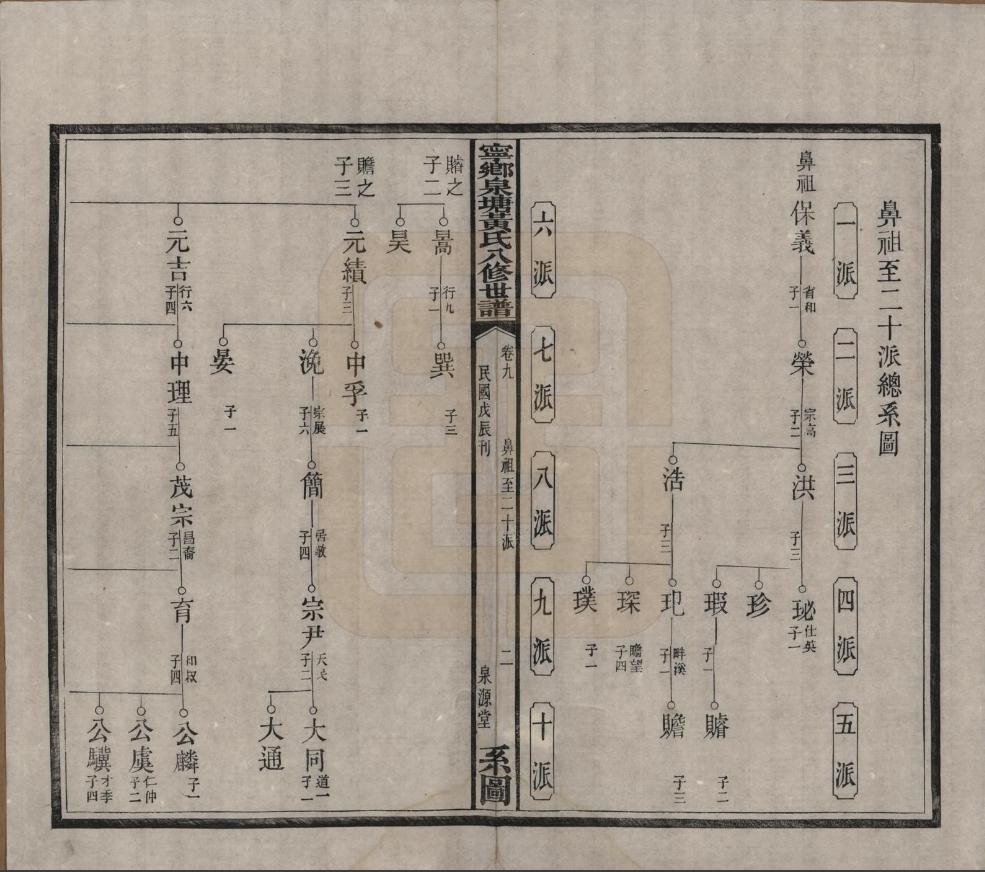 鼻祖至二十派總系圖
一派
二派
三派
四派
五派
鼻祖
保義
省和
子一
榮
宗高
子二
洪
子三
珌
仕英
子一
珍
瑕
子一
賰
子二
浩
子三
玘
畔溪
子一
贍
子三
琛
瞻望
子四
璞
子一
六派
七派
八派
九派
十派
寧鄉泉塘黃氏八修世譜
卷九
鼻祖至二十派
二
民國戊辰刊
泉源堂
系圖
賰之
子二
暠
行九
子一
巽
子三
昊
贍之
子三
元績
子三
中孚
子一
浼
宗展
子六
簡
居敬
子四
宗尹
子二
大同
道一
子一
大通
晏
子一
元吉
行六
子四
中理
子五
茂宗
昌裔
子二
育
和叔
子四
公麟
子一
公虞
仁仲
子二
公驥
才季
子四